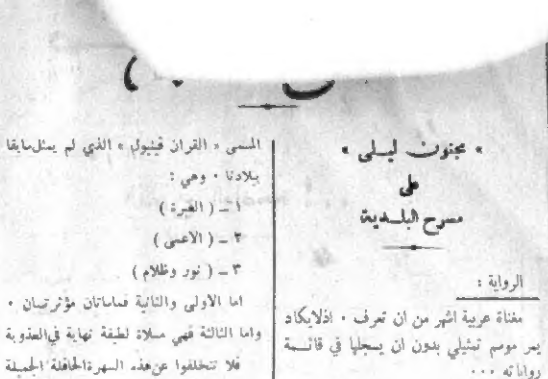 « مجنون ليلى »
على
مسرح البلدية
الرواية :
مغناة عربية اشهر من ان تعرف ٠ اذ لايكاد
يمر موسم تمثيلي بدون ان يسجلها في قائمة
رواياته ٠٠٠
المسمى « القران قينيول » الذي لم يمثل سابقا
ببلادنا ٠ وهي :
١ ـ ( الغيرة )
٢ ـ ( الاعمى )
٣ ـ ( نور وظلام )
اما الاولى والثانية فماساتان مؤثرتان ٠
واما الثالثة فهي مسلاة لطيفة نهاية في العذوبة
فلا تتخلفوا عن هذه السهرة الحافلة الجميلة